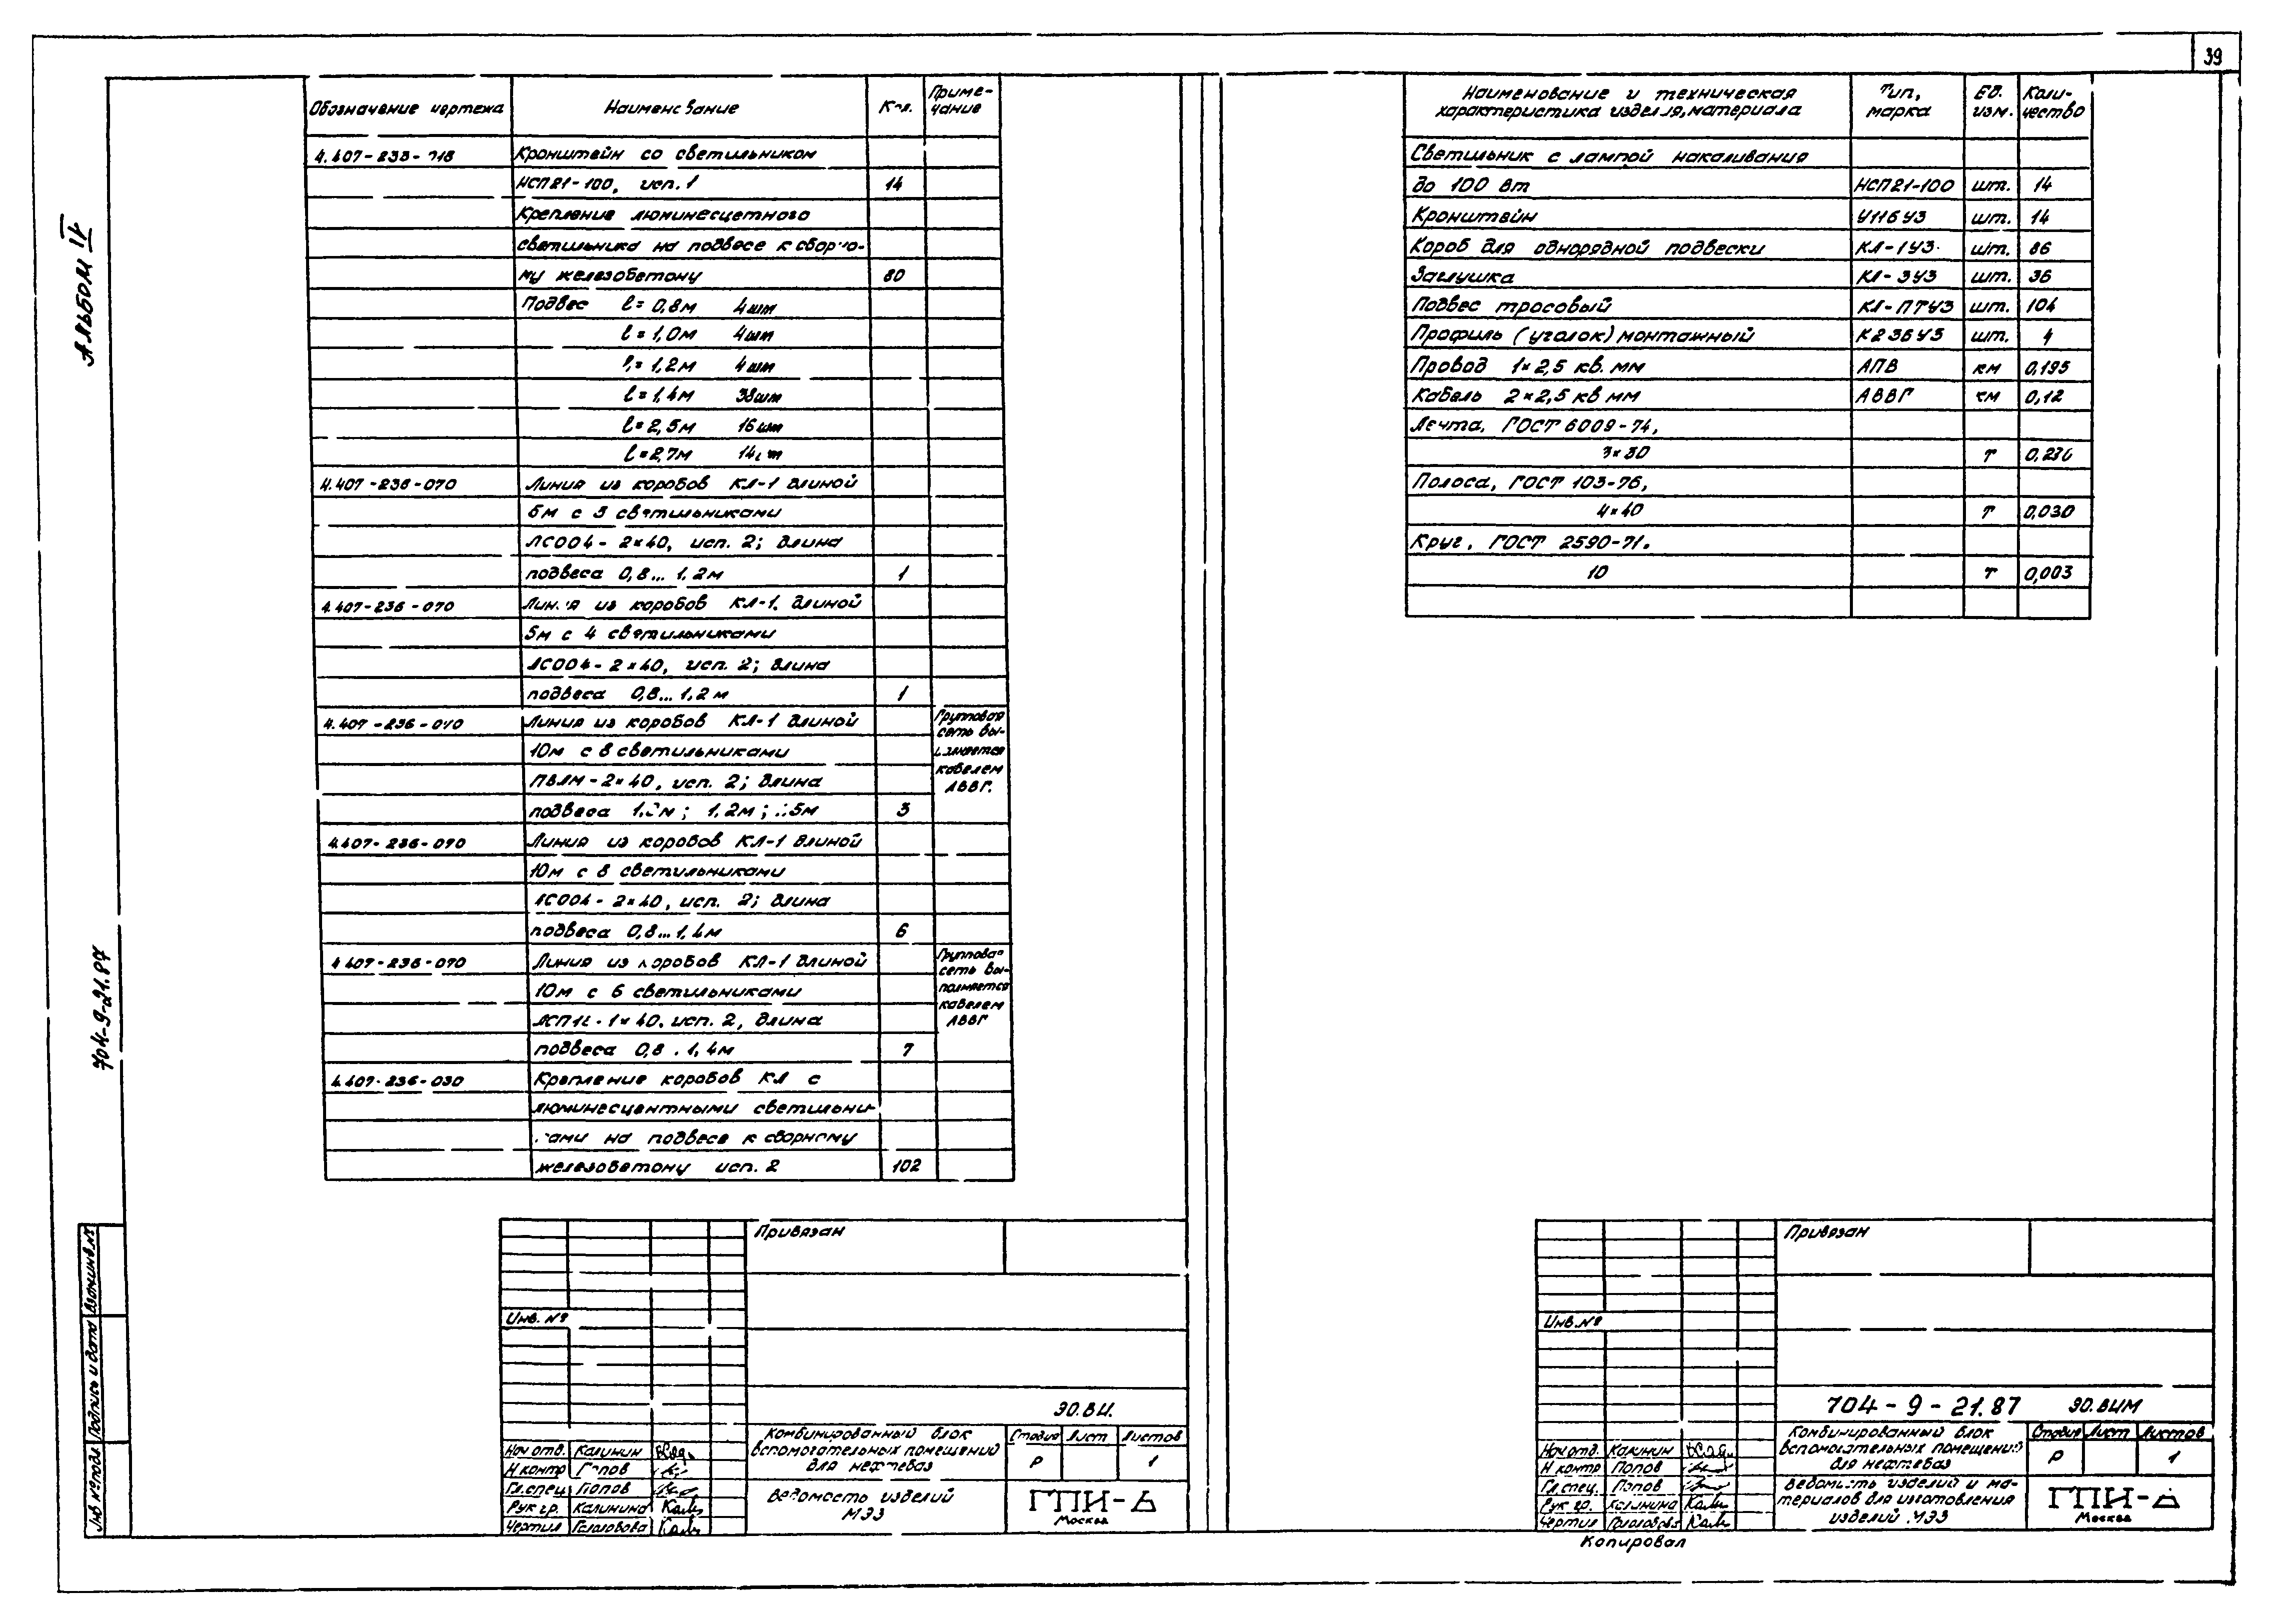 39
Альбом IV
704-9-21.87
Взам.инв.№
Подпись и дата
Инв № подл.
Обозначение чертежа Наименование Кол. Приме-
чание
4.407-233- Кронштейн со светильником
НСП21-100, исп. 1 14
Крепление люминесцетного
светильника на подвесе к сборно-
му железобетону 80
Подвес ℓ= 0,8м 4шт
ℓ= 1,0м 4шт
ℓ= 1,2м 4шт
ℓ= 1,4м 38шт
ℓ= 2,5м 16шт
ℓ= 2,7м 14шт
4.407-236-070 Линия из коробов КЛ-1 длиной
с светильниками
ЛСО04- 2×40, исп. 2; длина
подвеса 0,8... 1,2м 1
4.407-236-070 Линия из коробов КЛ-1 длиной
5м с 4 светильниками
ЛСО04- 2×40, исп. 2; длина
подвеса 0,8... 1,2м 1
4.407-236-070 Линия из коробов КЛ-1 длиной
10м с 8 светильниками
ПВЛМ-2×40, исп. 2; длина
подвеса 1,2м; 3
Групповая
сеть вы-
полняется
кабелем
АВВГ.
4.407-236-070 Линия из коробов КЛ-1 длиной
10м с 8 светильниками
ЛСО04- 2×40, исп. 2; длина
подвеса 0,8... 1,4м 6
4.407-236-070 Линия из коробов КЛ-1 длиной
10м с 6 светильниками
1×40, исп. 2, длина
подвеса 0,8 . 1,4м 7
Групповая
сеть вы-
полняется
кабелем
АВВГ
4.407-236-030 Крепление коробов КЛ с
люминесцентными светильни-
ками на подвесе к сборному
железобетону исп. 2 102
Привязан
Инв. №
ЭО.ВИ.
Нач отд. Калинин
Н контр Попов
Гл.спец Попов
Рук гр. Калинина
Чертил Голоовова
Комбинированный блок
вспомогательных помещений
для нефтебаз
Стадия Лист Листов
Р 1
Ведомость изделий
МЭЗ
ГПИ-6
Москва
Наименование и техническая
характеристика изделия, материала Тип,
марка Ед.
изм. Коли-
чество
Светильник с лампой накаливания
до 100 Вт НСП21-100 шт. 14
Кронштейн У116У3 шт. 14
Короб для однорядной подвески КЛ-1У3 шт. 86
Заглушка КЛ-3У3 шт. 36
Подвес тросовый КЛ-ПТУ3 шт. 104
Профиль (уголок) монтажный шт. 4
Провод 1×2,5 кв. мм АПВ км 0,195
Кабель 2×2,5 кв мм АВВГ км 0,12
Лента, ГОСТ 6009-74,
3×30 т
Полоса, ГОСТ 103-76,
4×40 т 0,030
Круг, ГОСТ 2590-71.
10 т 0,003
Привязан
Инв.№
704-9-21.87 ЭО.ВИМ
Нач отд. Калинин
Н контр Попов
Гл.спец. Попов
Рук гр. Калинина
Чертил
Комбинированный блок
вспомогательных помещений
для нефтебаз
Стадия Лист Листов
Р 1
Ведомость изделий и ма-
териалов для изготовления
изделий МЭЗ
ГПИ-6
Москва
Копировал